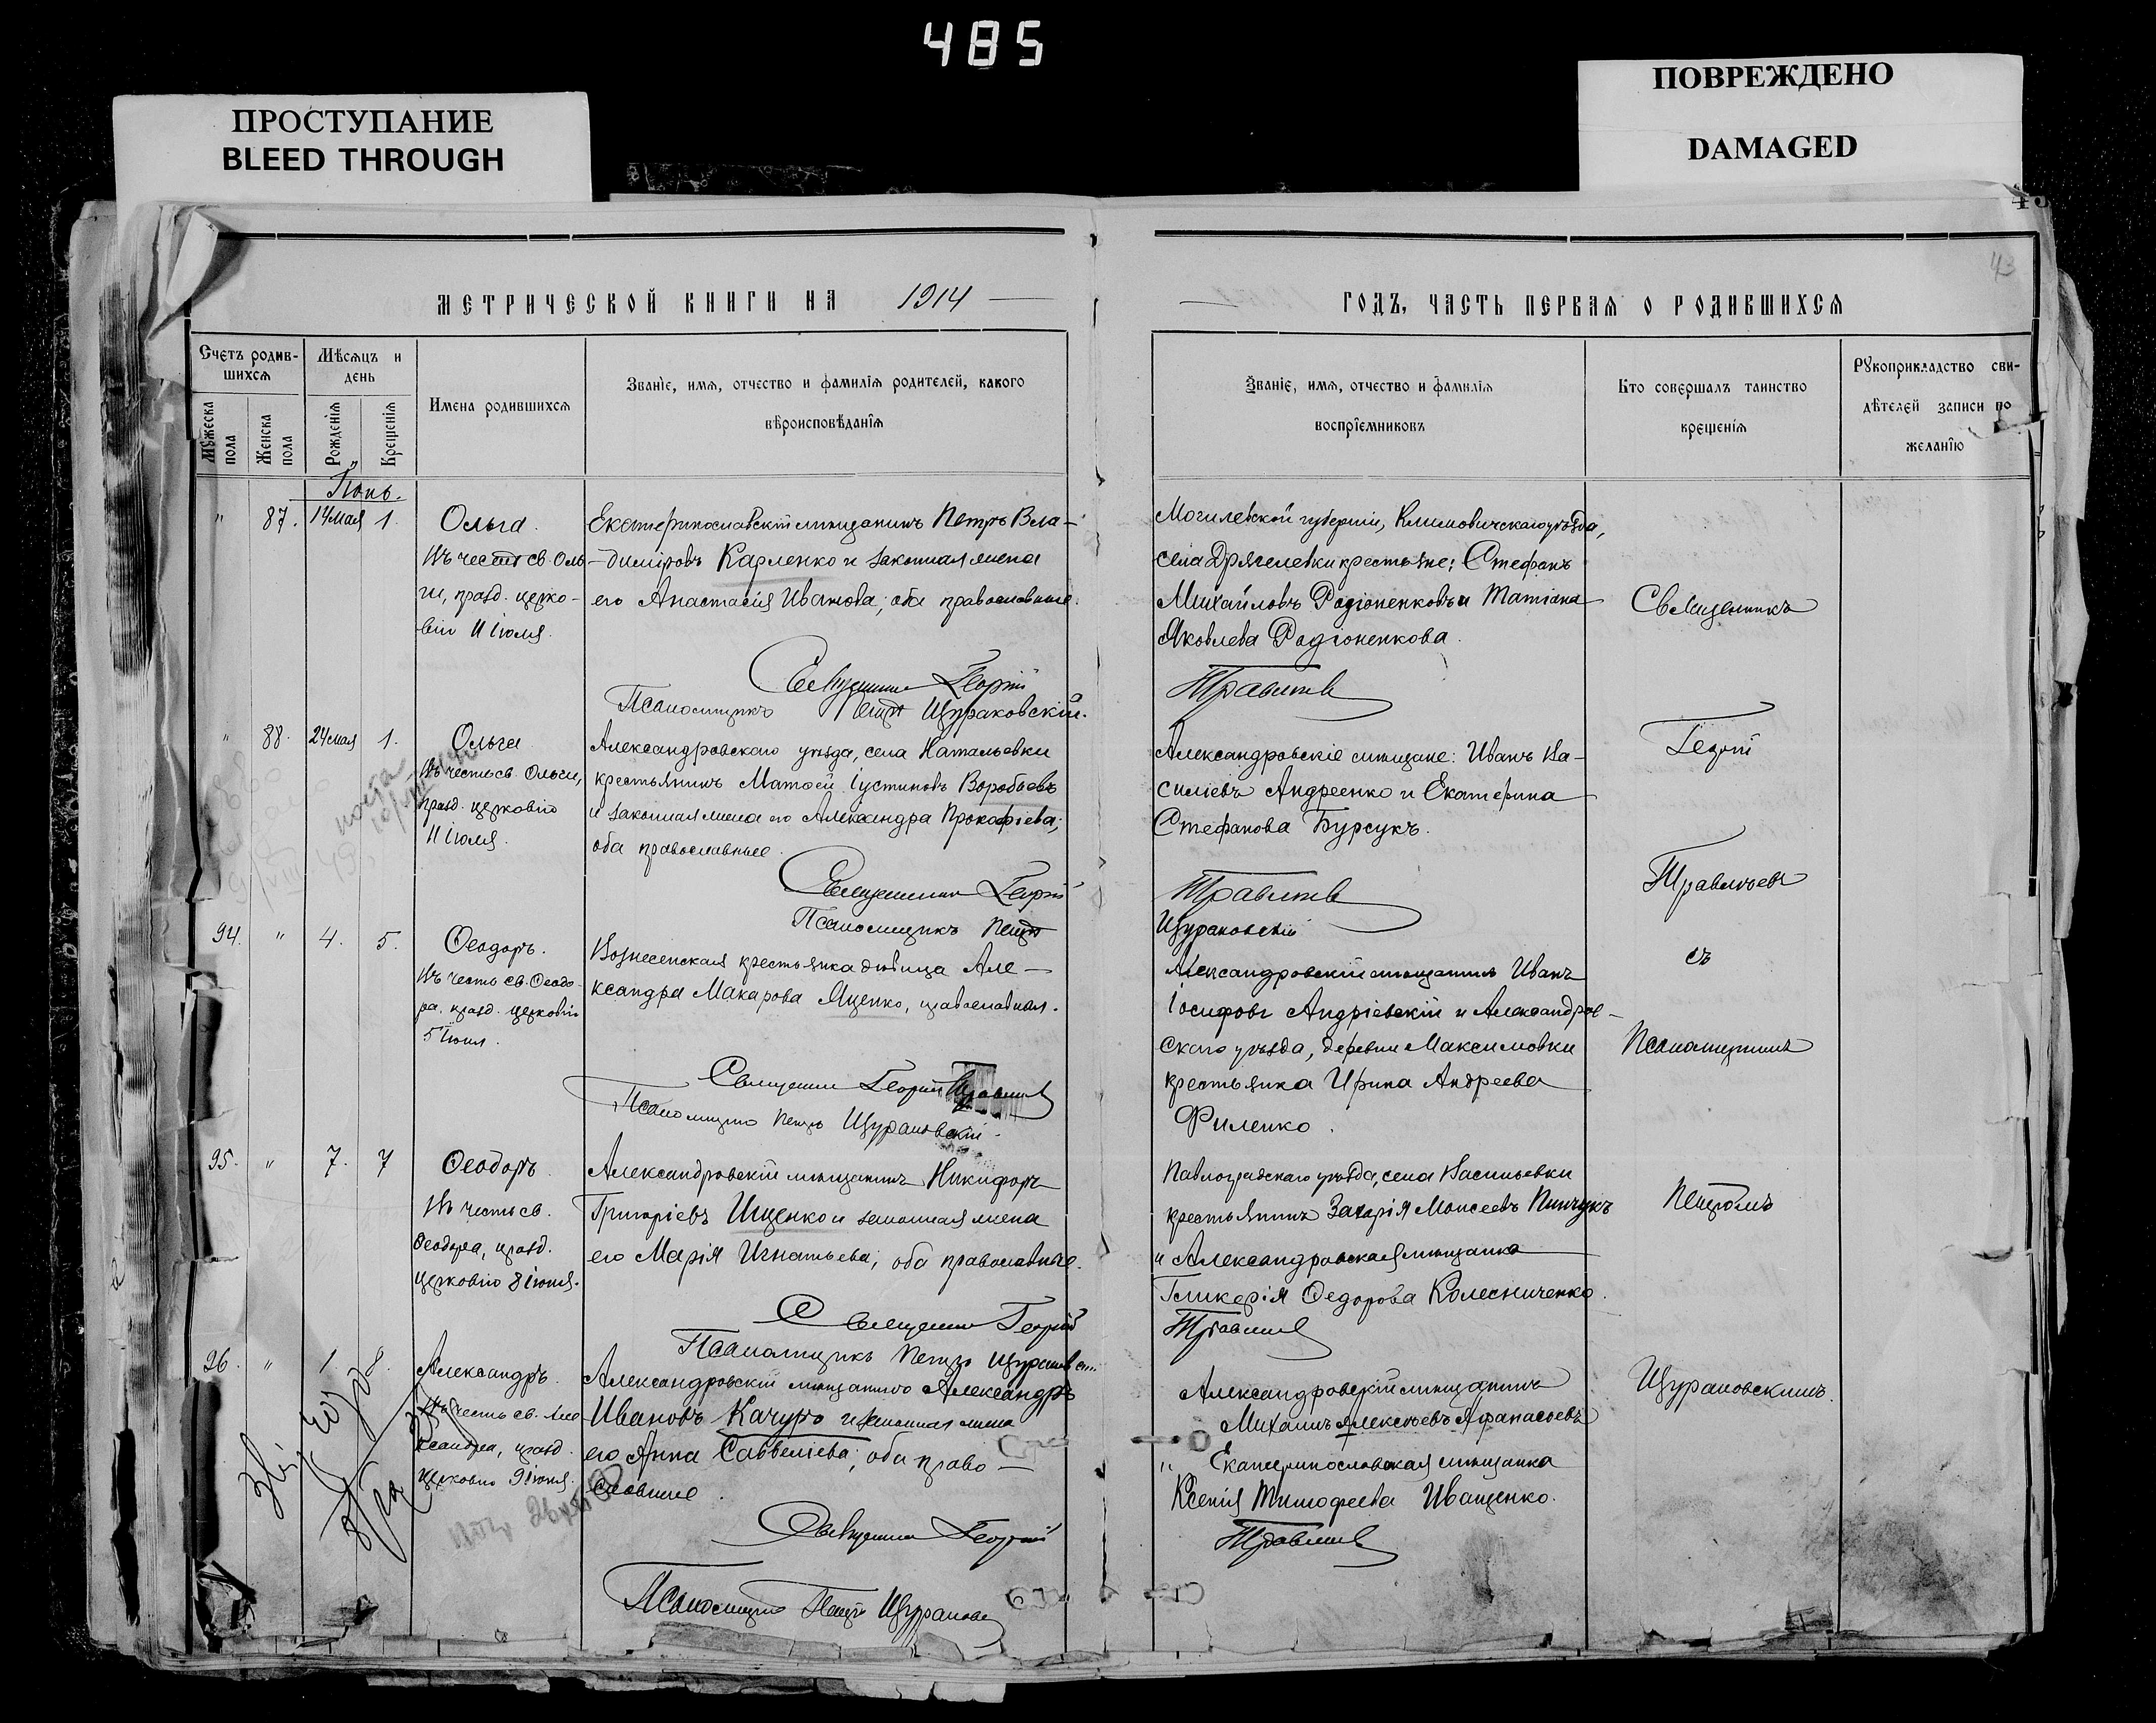 485
ПРОСТУПАНИЕ
BLEED THROUGH
ПОВРЕЖДЕНО
DAMAGED
43
МЕТРИЧЕСКОЙ КНИГИ НА 1914
ГОДЪ, ЧАСТЬ ПЕРВАЯ О РОДИВШИХСЯ
Счетъ родив-
шихся
Мужеска пола
Женска пола
Мѣсяцъ и
день
Рожденія
Крещенія
Имена родившихся
Званіе, имя, отчество и фамилія родителей, какого
вѣроисповѣданія
Званіе, имя, отчество и фамилія
воспріемниковъ
Кто совершалъ таинство
крещенія
Рукоприкладство сви-
дѣтелей записи по
желанію
Іюнь.
" 87. 14 мая 1.
Ольга.
Въ честь св. Оль-
ги, празд. церко-
вію 11 іюля.
Екатеринославскій мѣщанинъ Петръ Вла-
-диміровъ Карленко и законная жена
его Анастасія Иванова; оба православные.
Священникъ Георгій
Псаломщикъ Петръ Щураковскій.
Могилевской губерніи, Климовичскаго уѣзда,
села крестьяне: Стефанъ
Михайловъ Родіоненковъ и Татіана
Яковлева Родіоненкова.
Травлѣевъ
" 88. 24 мая 1.
Ольга
Въ честь св. Ольги,
празд. церковію
11 іюля.
Александровскаго уѣзда, села Натальевки
крестьянинъ Матѳей Іустиновъ Воробьевъ
и законная жена его Александра Прокофіева;
оба православные.
Священникъ Георгій
Псаломщикъ Петръ
Александровскіе мѣщане: Иванъ Ва-
силіевъ Андреенко и Екатерина
Стефанова Бурсукъ.
Травлѣевъ
Щураковскій
94. " 4. 5.
Ѳеодоръ.
Въ честь св. Ѳеодо-
ра, празд. церковію
5 іюня.
Вознесенская крестьянка дѣвица Але-
ксандра Макарова Яценко, православная.
Священникъ Георгій Травлѣевъ
Псаломщикъ Петръ Щураковскій.
Александровскій мѣщанинъ Иванъ
Іосифовъ Андріевскій и Александров-
скаго уѣзда, деревни Максимовки
крестьянка Ирина Андреева
Филенко.
95. " 7. 7
Ѳеодоръ
Въ честь св.
Ѳеодора, празд.
церковію 8 іюня.
Александровскій мѣщанинъ Никифоръ
Григоріевъ Ищенко и законная жена
его Марія Игнатьева; оба православные.
Священникъ Георгій
Псаломщикъ Петръ Щураковскій
Павлоградскаго уѣзда, села Васильевки
крестьянинъ Захарія Моисеевъ Пинчукъ
и Александровская мѣщанка
Гликерія Ѳедорова Колесниченко.
Травлѣевъ
96. " 1 8.
Александръ.
Въ честь св. Але-
ксандра, празд.
церковію 9 іюня.
Александровскій мѣщанинъ Александръ
Ивановъ Качуръ и законная жена
его Анна Саввеліева; оба право-
славные.
Священникъ Георгій
Псаломщикъ Петръ Щураковскій
Александровскій мѣщанинъ
Михаилъ Алексѣевъ Афанасьевъ
и Екатеринославская мѣщанка
Ксенія Тимоѳеева Иващенко.
Травлѣевъ
Священникъ
Георгій
Травлѣевъ
съ
Псаломщикомъ
Петромъ
Щураковскимъ.